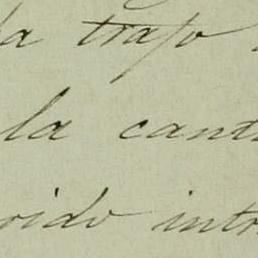 la trajo
la cant
rido intr